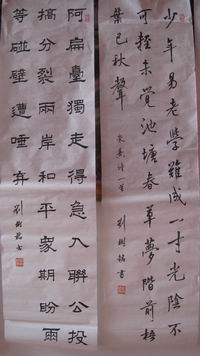 少年易老學難成一寸光陰不
可輕未覺池塘春草夢階前梧
葉已秋聲 朱熹詩一首 劉樹書
阿扁臺獨走得急入聯公投
搞分裂兩岸和平眾期盼
等碰壁遭唾弃 劉樹